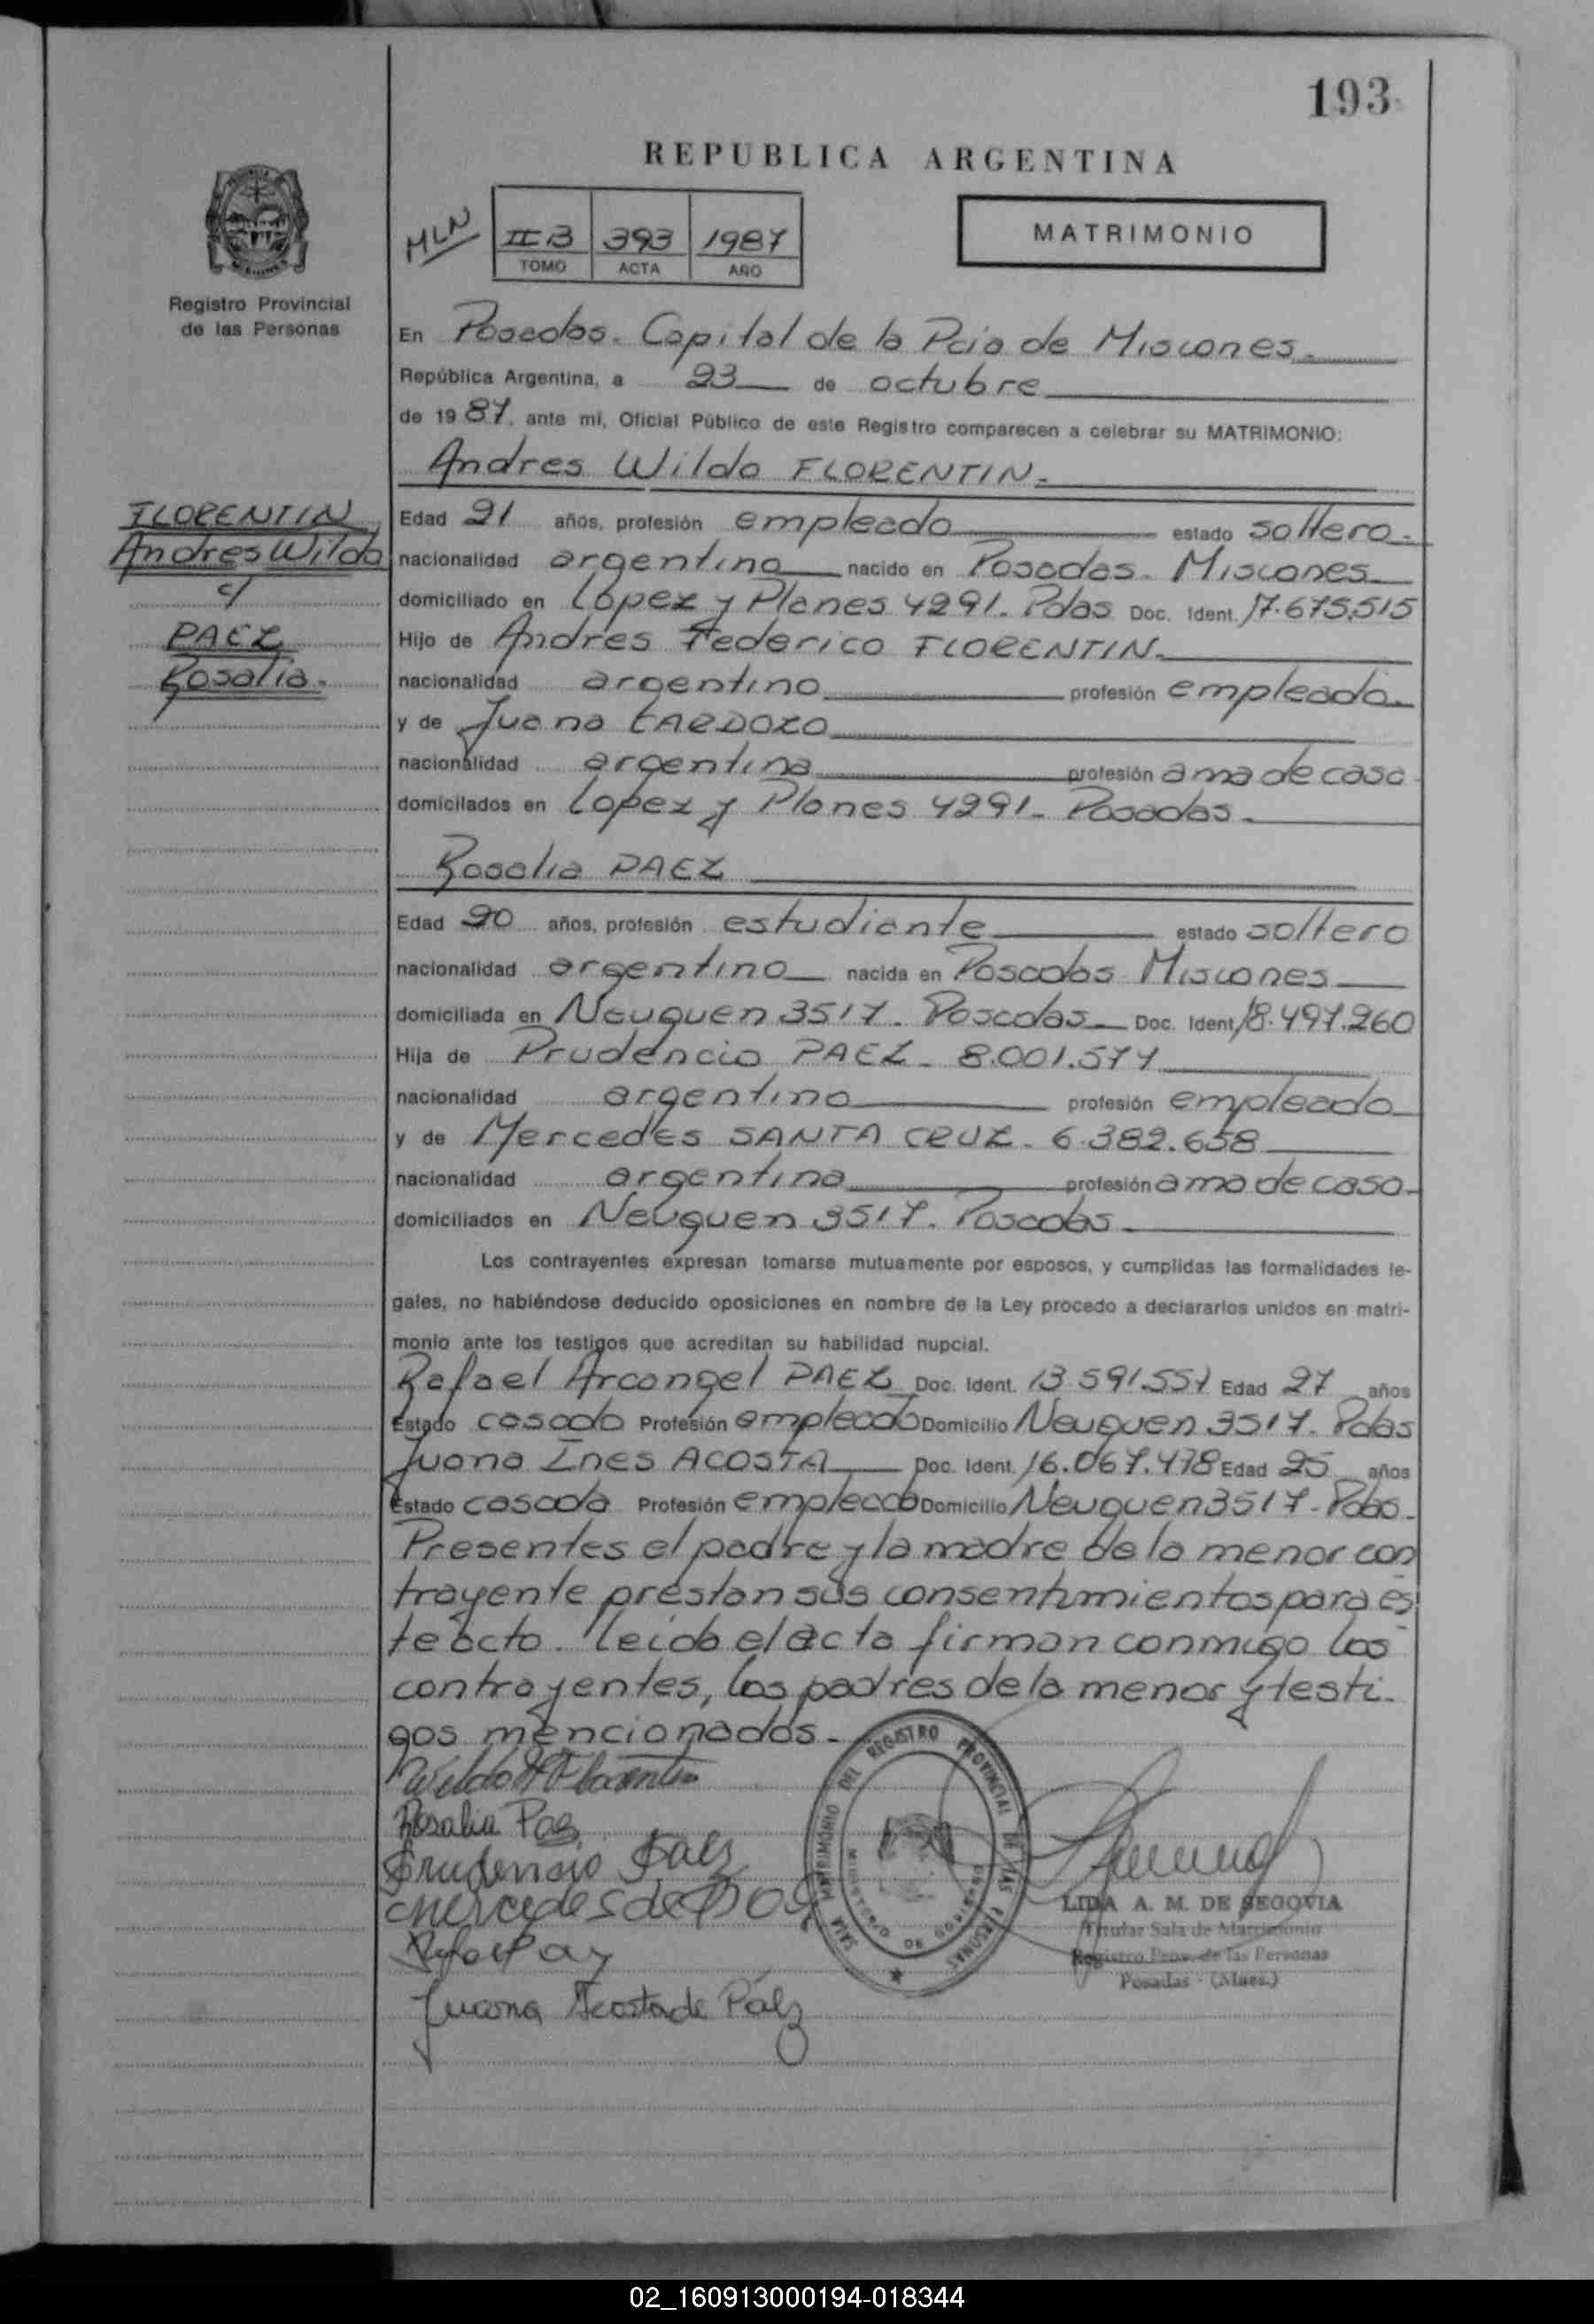 193
REPUBLICA ARGENTINA
MLN
II B 393 1987
TOMO ACTA AÑO
MATRIMONIO
Registro Provincial
de las Personas
En Posadas. Capital de la Pcia de Misiones.
República Argentina, a 23 de octubre
de 1987, ante mi, Oficial Público de este Registro comparecen a celebrar su MATRIMONIO:
Andres Wildo FLORENTIN.
FLORENTIN
Andres Wildo
c/
PAEZ
Rosalia.
Edad 21 años, profesión empleado estado soltero.
nacionalidad argentino nacido en Posadas. Misiones
domiciliado en Lopez y Planes 4291. Pdas Doc. Ident. 17.675.515
Hijo de Andres Federico FLORENTIN.
nacionalidad argentino profesión empleado.
y de Juana CARDOZO
nacionalidad argentina profesión ama de casa
domicilados en Lopez y Planes 4291. Posadas.
Rosalia PAEZ
Edad 20 años, profesión estudiante estado soltera
nacionalidad argentina nacida en Posadas Misiones
domiciliada en Neuquen 3517. Posadas. Doc. Ident. 18.497.260
Hija de Prudencio PAEZ. 8.001.574
nacionalidad argentino profesión empleado
y de Mercedes SANTA CRUZ. 6.382.658
nacionalidad argentina profesión ama de casa.
domiciliados en Neuquen 3517. Posadas.
Los contrayentes expresan tomarse mutuamente por esposos, y cumplidas las formalidades le-
gales, no habiéndose deducido oposiciones en nombre de la Ley procedo a declararlos unidos en matri-
monio ante los testigos que acreditan su habilidad nupcial.
Rafael Arcangel PAEZ Doc. Ident. 13.591.557 Edad 27 años
Estado casado Profesión empleado Domicilio Neuquen 3517. Pdas
Juana Ines ACOSTA Doc. Ident. 16.067.478 Edad 25 años
Estado casada Profesión empleada Domicilio Neuquen 3517. Pdas.
Presentes el padre y la madre de la menor con
trayente prestan sus consentimientos para es
te acto. leida el acta firman conmigo los
contrayentes, los padres de la menor y testi-
gos mencionados.
Wildo A Florentin
Rosalia Paez
Prudencio Paez
Mercedes de Paez
Juana Acosta de Páez
SALA MATRIMONIO DEL REGISTRO PROVINCIAL DE LAS PERSONAS
LIDA A. M. DE SEGOVIA
Titular Sala de Matrimonio
Registro Prov. de las Personas
Posadas - (Mnes.)
02_160913000194-018344